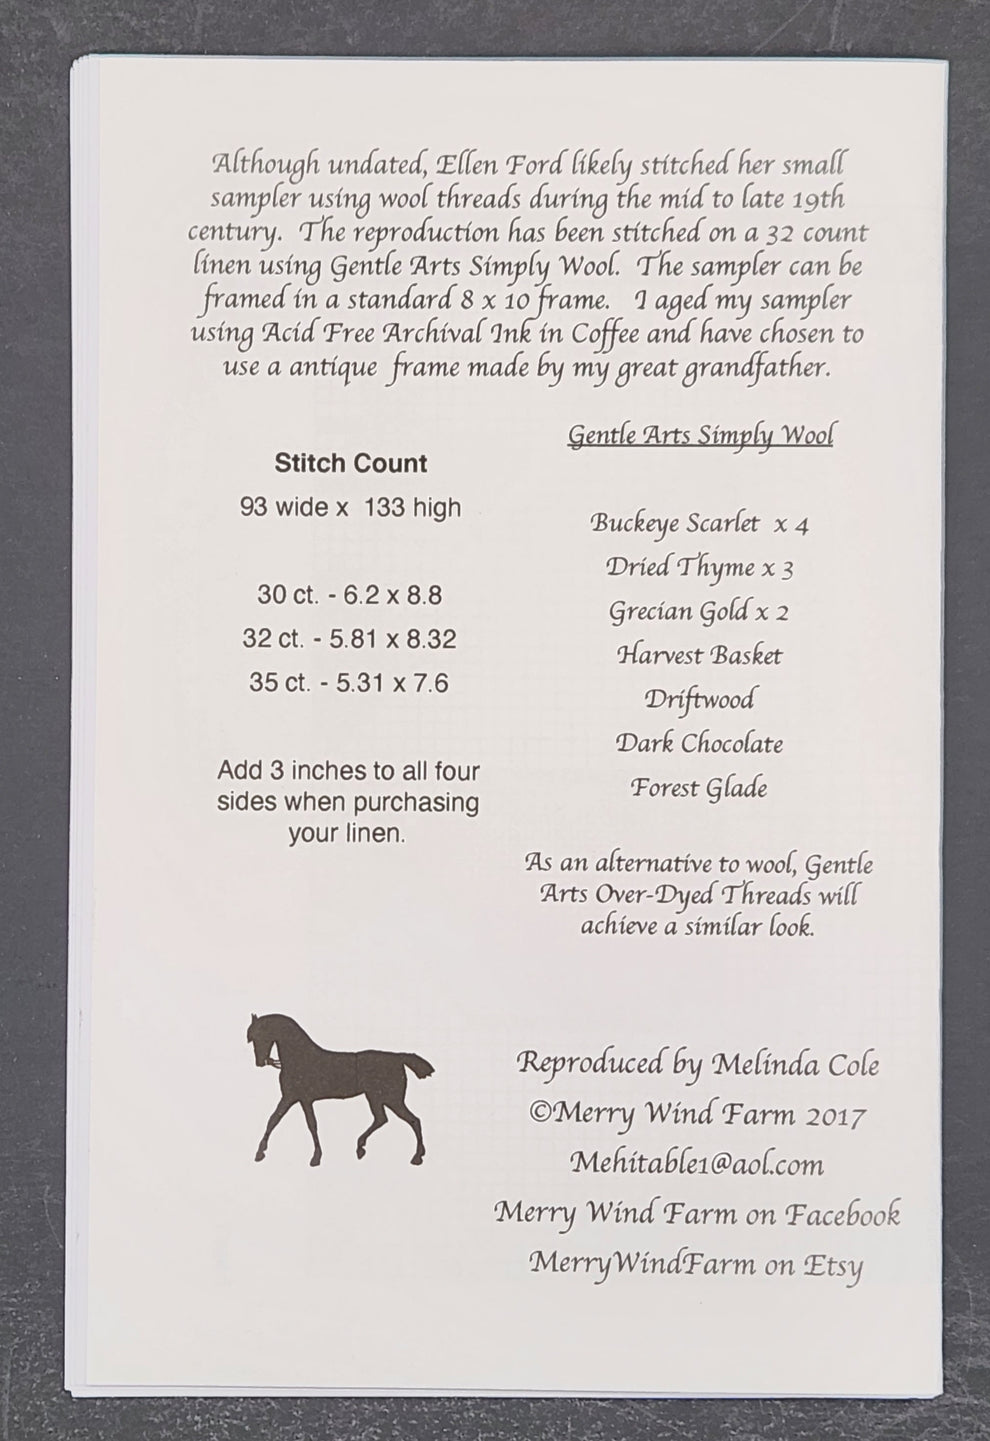 Although undated, Ellen Ford likely stitched her small
sampler using wool threads during the mid to late 19th
century. The reproduction has been stitched on a 32 count
linen using Gentle Arts Simply Wool. The sampler can be
framed in a standard 8 x 10 frame. I aged my sampler
using Acid Free Archival Ink in Coffee and have chosen to
use a antique frame made by my great grandfather.
Stitch Count
93 wide x 133 high
30 ct. - 6.2 x 8.8
32 ct. - 5.81 x 8.32
35 ct. - 5.31 x 7.6
Add 3 inches to all four
sides when purchasing
your linen.
Gentle Arts Simply Wool
Buckeye Scarlet x 4
Dried Thyme x 3
Grecian Gold x 2
Harvest Basket
Driftwood
Dark Chocolate
Forest Glade
As an alternative to wool, Gentle
Arts Over-Dyed Threads will
achieve a similar look.
Reproduced by Melinda Cole
©Merry Wind Farm 2017
Mehitable1@aol.com
Merry Wind Farm on Facebook
MerryWindFarm on Etsy